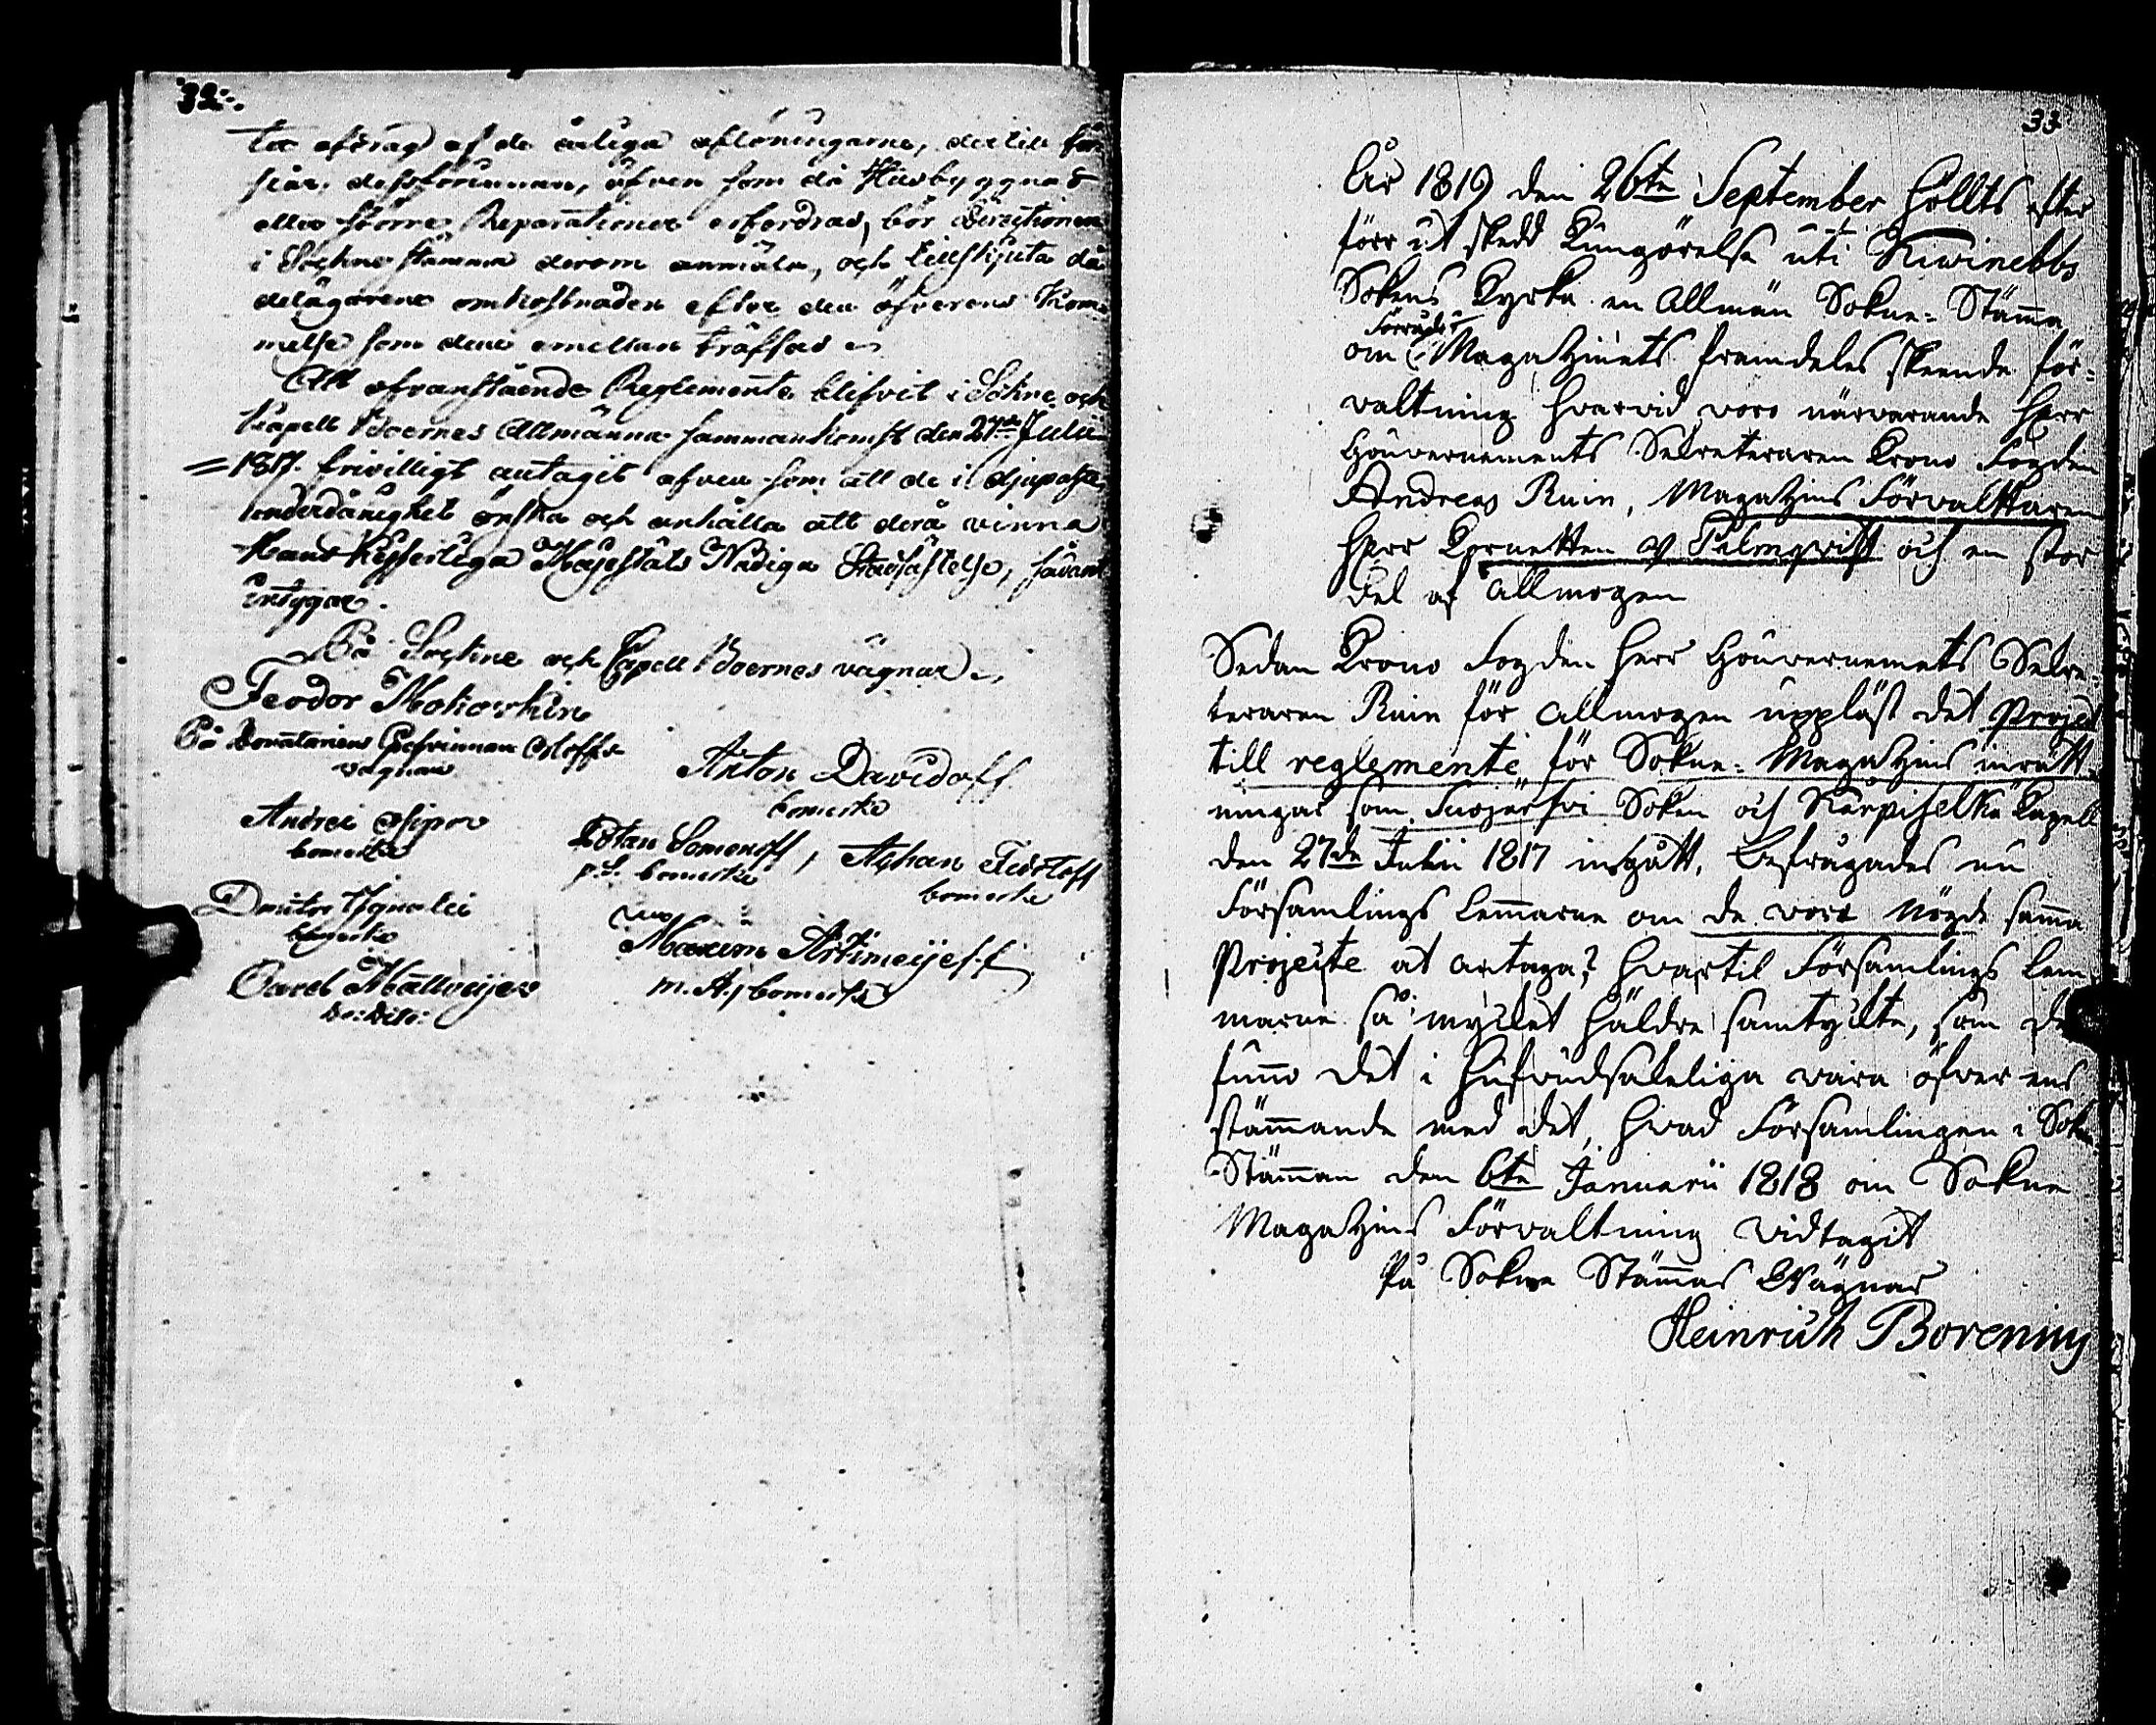 32.
ter afdrag af de årliga aflöningarne, der till för
siar. dessförinnan, äfven som då Husbyggnad
eller större Reparationer erfordras, bör Directionen
i Sockne stämma derom anmäla, och tillskjuta då
delägarene omkostnaden efter den öfverens kom-
melse som dem emellan träffas
Att ofvanstående Reglemente blifvit i Sokne och
Kapell Boernes Allmänna sammankomst den 27de Julii
1817. frivilligt antagit äfven som att de i djupaste
underdånighet önska och anhålla att derå vinna
Hans Kejserliga Majestäts Nådiga Stadfästelse, sådant
intygar.
På Sockne och Capell Boernes vägnar
Feodor Mokowkin
På Donatariens Grefvinnan Orloffs
vägnar
Anton Davidoff
bomerke
Andrei Osipov
bomerke
Potan Somenoff, Aphan Fedotoff
p.S. bomerke
bomerke
Dmitor Ignatei
bomerke
Maxim Artimeijeff
m. A. bomerke
Carel Mattveijew
do: dito:
33
År 1819 den 26te September höllts efter
förr ut skedd Kungörelse uti Kiwinebbs
Sokens Kyrka en Allmän Sokne-Stämma
Förråds
om Magatzinets framdeles skeende för-
valtning hvarvid voro närvarande Herr
Gouvernements Sekreteraren Krono Fogden
Andreas Ruin, Magatzins Förvalttaren
Herr Cornetten af Palmqvist och en stor
del af Allmogen
Sedan Krono Fogden Herr Gouvernemets Sekre-
teraren Ruin för Allmogen uppläst det Project
till reglemente för Sokne-Magatzins inrätt-
ningar som Suojärfvi Soken och Karpiselkä Kapell
den 27de Julii 1817 ingått, befrågades nu
Församlings lemmarne om de voro nögde samma
Projecte at antaga? hvartil Församlings lem-
marne så mycket häldre samtyckte, som de
funno det i hufvudsakeliga vara öfver ens
stämmande med det, hvad Församlingen i Sokne
Stämman den 6te Januarii 1818 om Sokne
Magatzins Förvaltning vidtagit
På Sokne Stämmas Wägnar
Heinrich Borening